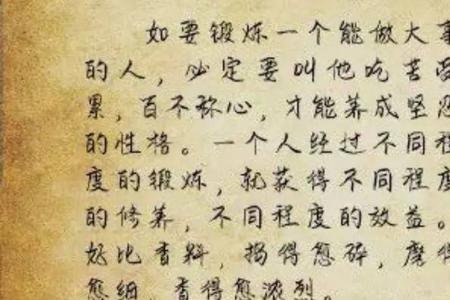 如要锻炼一个能做大事
的人，必定要叫他吃苦受
累，百不称心，才能养成坚忍
的性格。一个人经过不同程
度的锻炼，就获得不同程度
的修养，不同程度的效益。
好比香料，捣得愈碎，磨得
愈细，香得愈浓烈。